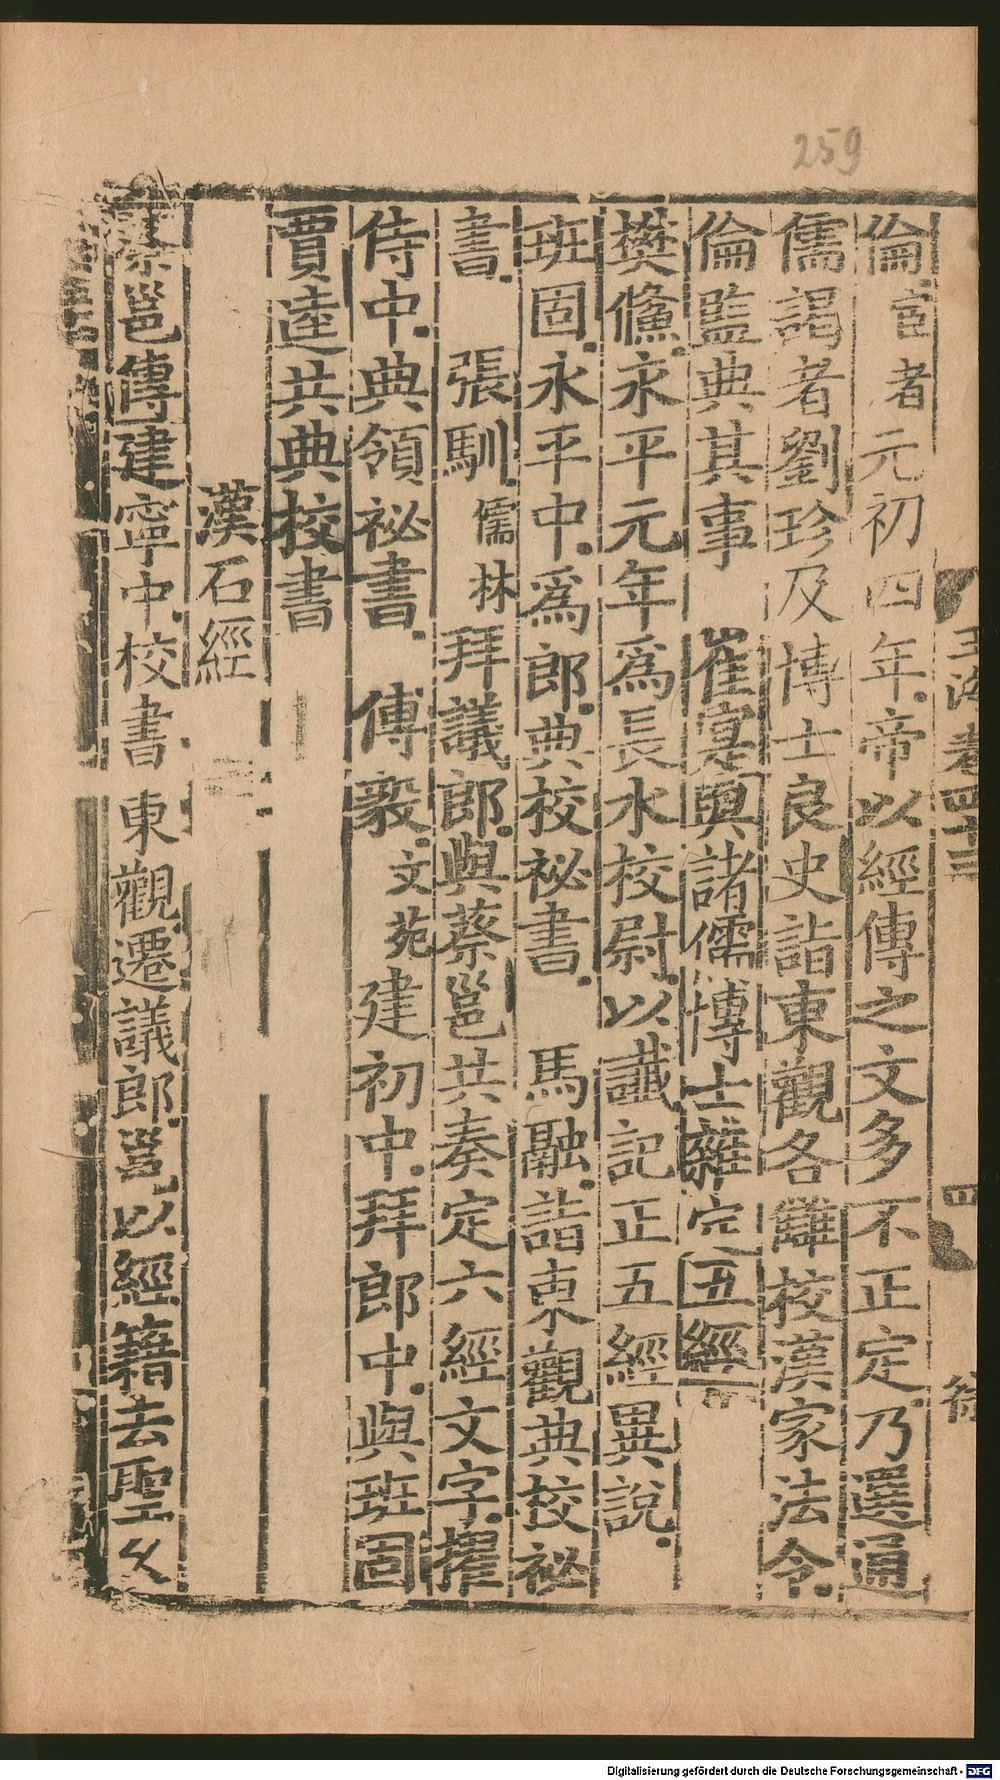 259
倫宦者元初四年帝以經傳之文多不正定乃選通
儒謁者劉珍及博士良史詣東觀各讎校漢家法令
倫監典其事　崔寔與諸儒博士雜定五經
樊鯈永平元年為長水校尉以讖記正五經異說
班固永平中為郎典校祕書　馬融詣東觀典校祕
書　張馴儒林拜議郎與蔡邕共奏定六經文字擢
侍中典領祕書　傅毅文苑建初中拜郎中與班固
賈逵共典校書
漢石經
蔡邕傳建寧中校書東觀遷議郎邕以經籍去聖久
玉海卷四十三　四
Digitalisierung gefördert durch die Deutsche Forschungsgemeinschaft - DFG